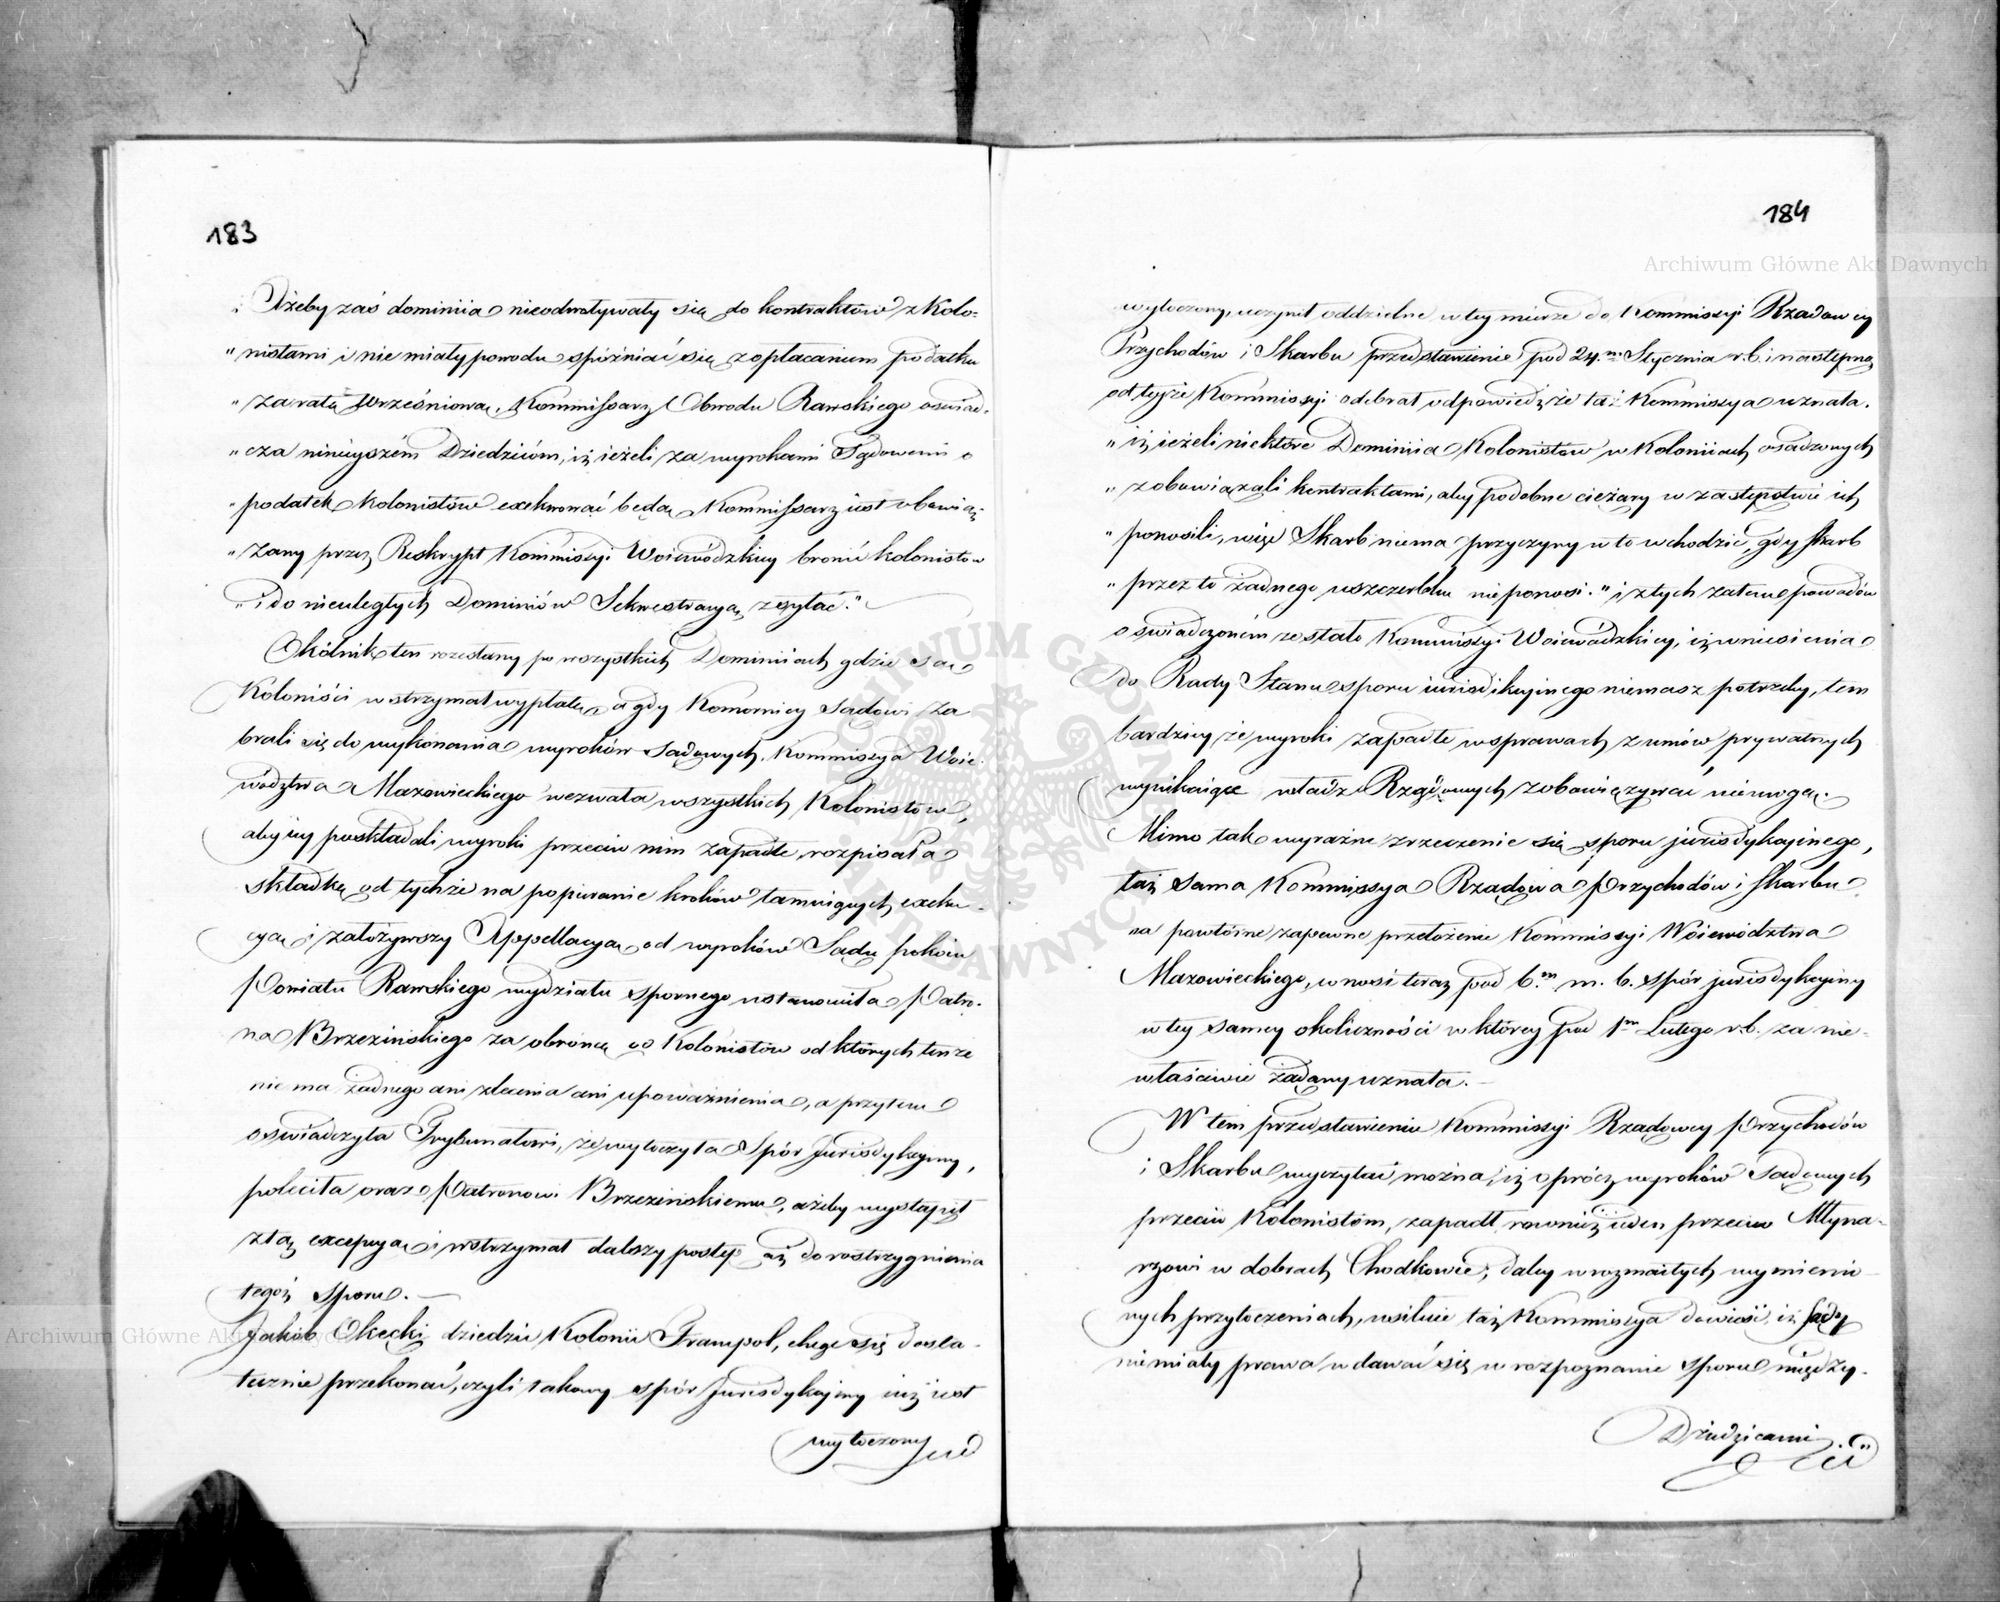 183
Ażeby zaś dominiia nieodwoływały się do kontraktów z Kolo-
" nistami i nie miały powodu spóźniać się z opłacaniem podatku
" za ratę Wrześniową, Kommissarz Obwodu Rawskiego oświad-
" cza ninieyszém Dziedzicóm, iż ieżeli za wyrokami Sądowemi o
" podatek Kolonistów exekwować będą, Kommissarz iest obowią-
" zany przez Reskrypt Kommissyi Woiewódzkiey bronić kolonistów
" i do nieuległych Dominiów Sekwestracyą zesyłać."
Okólnik ten rozesłany po wszystkich Dominiiach gdzie są
Koloniści wstrzymał wypłatę, a gdy Komornicy Sądowi za
brali się do wykonania wyroków Sądowych, Kommissya Woie-
wództwa Mazowieckiego wezwała wszystkich Kolonistów,
aby iey poskładali wyroki przeciw nim zapadłe, rozpisała
składkę od tychże na popieranie kroków tamuiących exeku-
cyą i założywszy Appellacyą od wyroków Sądu pokoiu
Powiatu Rawskiego wydziału spornego ustanowiła Patro-
na Brzezińskiego za obrońcę Kolonistów od których tenże
nie ma żadnego ani zlecenia ani upoważnienia, a przytem
oświadczyła Trybunałowi, że wytoczyła Spór Jurisdykcyiny,
poleciła oraz Patronowi Brzezińskiemu, ażeby wystąpił
z tą excepcyą i wstrzymał dalszy postęp aż do rozstrzygnienia
tegoż sporu.
Jakób Okęcki dziedzic Kolonii Trampol, chcąc się dosta-
tecznie przekonać, czyli takowy spór Jurisdykcyiny iuż iest
wytoczony
184
wytoczony, uczynił oddzielne w tey mierze do Kommissyi Rządowey
Przychodów i Skarbu przedstawienie pod 24.m Stycznia r.b. i następną
od teyże Kommissyi odebrał odpowiedź, że taż Kommissya uznała.
" iż ieżeli niektóre Dominiia Kolonistów w Koloniiach osadzonych
" zobowiązali kontraktami, aby podobne ciężary w zastępstwie ich
" ponosili, więc Skarb niema przyczyny w to wchodzić, gdy skarb
" przez to żadnego uszczerbku nie ponosi." i z tych zatem powodów
oświadczoném zostało Kommissyi Woiewódzkiey, iż wniesienia
do Rady Stanu sporu iurisdikcyinego niemasz potrzeby, tem
bardziey że wyroki zapadłe w sprawach z umów prywatnych
wynikaiące władz Rządowych zobowiązywać niemogą.
Mimo tak wyraźne zrzeczenie się sporu jurisdykcyinego,
taż sama Kommissya Rządowa Przychodów i Skarbu
na powtórne zapewne przełożenie Kommissyi Województwa
Mazowieckiego, wnosi teraz pod 6.m m. b. spór jurisdykcyiny
w tey samey okoliczności w którey pod 1m Lutego r.b. za nie-
właściwie żądany uznała.
W tem przedstawieniu Kommissyi Rządowey Przychodów
i Skarbu wyczytać można, iż oprócz wyroków Sądowych
przeciw Kolonistom, zapadł rownież ieden przeciw Młyna-
rzowi w dobrach Chodkowie, daley w rozmaitych wymienio-
nych przytoczeniach, usiłuie taż Kommissya dowieść, iż sądy
niemiały prawa wdawać się w rozpoznanie sporu między
Dziedzicami